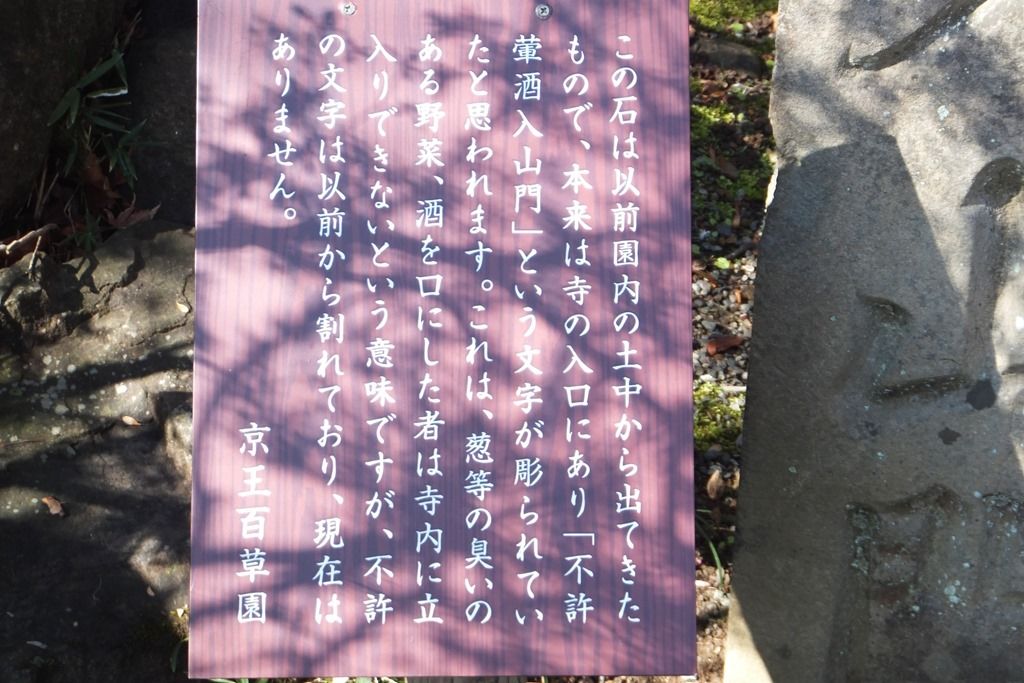 この石は以前園内の土中から出てきた
もので、本来は寺の入口にあり「不許
葷酒入山門」という文字が彫られてい
たと思われます。これは、葱等の臭いの
ある野菜、酒を口にした者は寺内に立
入りできないという意味ですが、不許
の文字は以前から割れており、現在は
ありません。
京王百草園